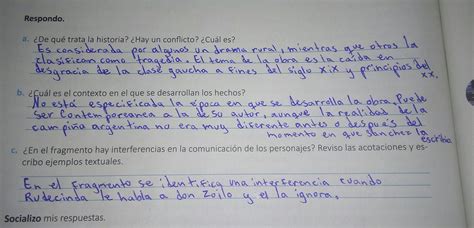 Respondo.
a. ¿De qué trata la historia? ¿Hay un conflicto? ¿Cuál es?
Es considerada por algunos un drama rural, mientras que otros la
clasifican como tragedia. El tema de la obra es la caída en
desgracia de la clase gaucha a fines del siglo xix y principios del
xx.
b. ¿Cuál es el contexto en el que se desarrollan los hechos?
No está especificada la época en que se desarrolla la obra. Puede
ser Contemporeanea a la de su autor, aunque la realidad de la
campiña argentina no era muy diferente antes o después del
momento en que Sanchez la
escribio
c. ¿En el fragmento hay interferencias en la comunicación de los personajes? Reviso las acotaciones y es-
cribo ejemplos textuales.
En el fragmento se identifica una interferencia cuando
Rudecinda le habla a don Zoilo y el la ignora.
Socializo mis respuestas.